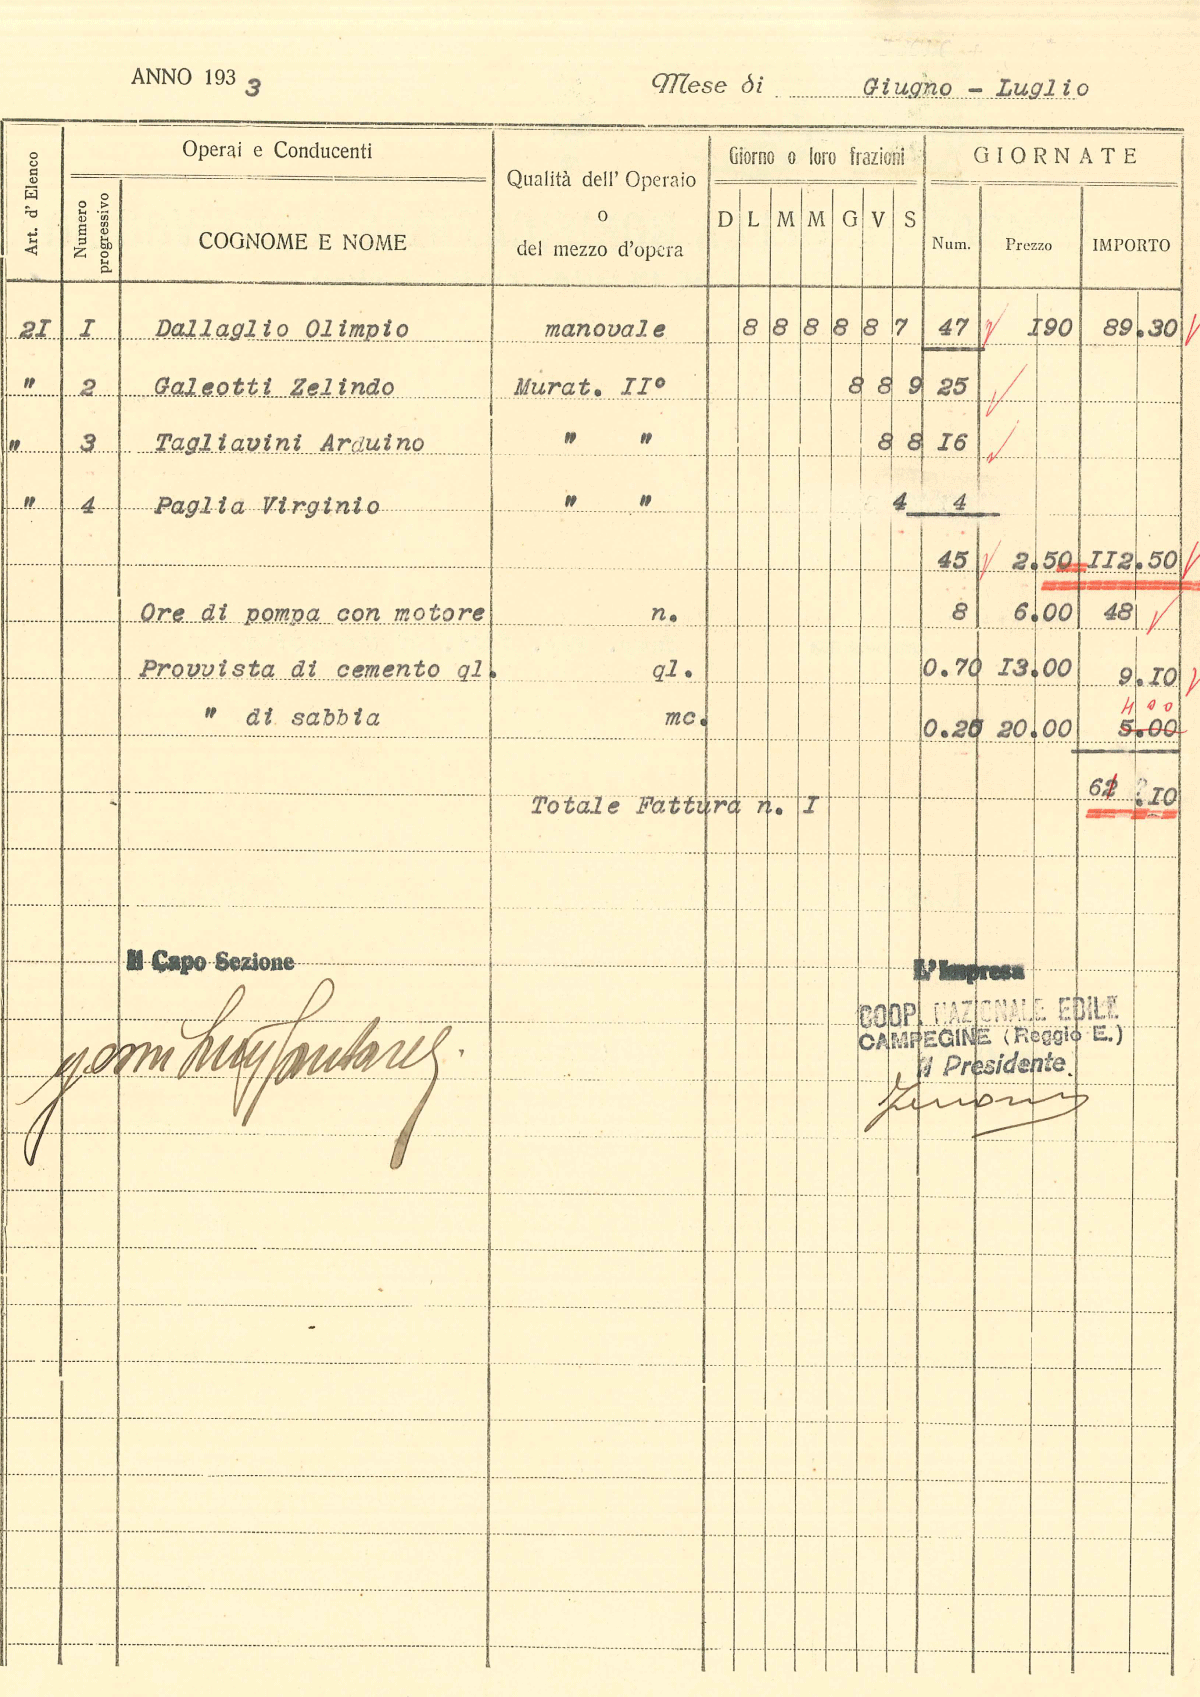 ANNO 1933 Mese di Giugno - Luglio
Art. d' Elenco Numero progressivo Operai e Conducenti Qualità dell' Operaio Giorno o loro frazioni GIORNATE
COGNOME E NOME o D L M M G V S Num. Prezzo IMPORTO
del mezzo d'opera
2I I Dallaglio Olimpio manovale 8 8 8 8 8 7 47 I90 89.30
" 2 Galeotti Zelindo Murat. II° 8 8 9 25
" 3 Tagliavini Arduino " " 8 8 I6
" 4 Paglia Virginio " " 4 4
45 2.50 II2.50
Ore di pompa con motore n. 8 6.00 48
Provvista di cemento ql. ql. 0.70 I3.00 9.I0
4 00
" di sabbia mc. 20.00 5.00
Totale Fattura n. I .I0
Il Capo Sezione L'Impresa
COOP. NAZIONALE EDILE
CAMPEGINE (Reggio E.)
Il Presidente